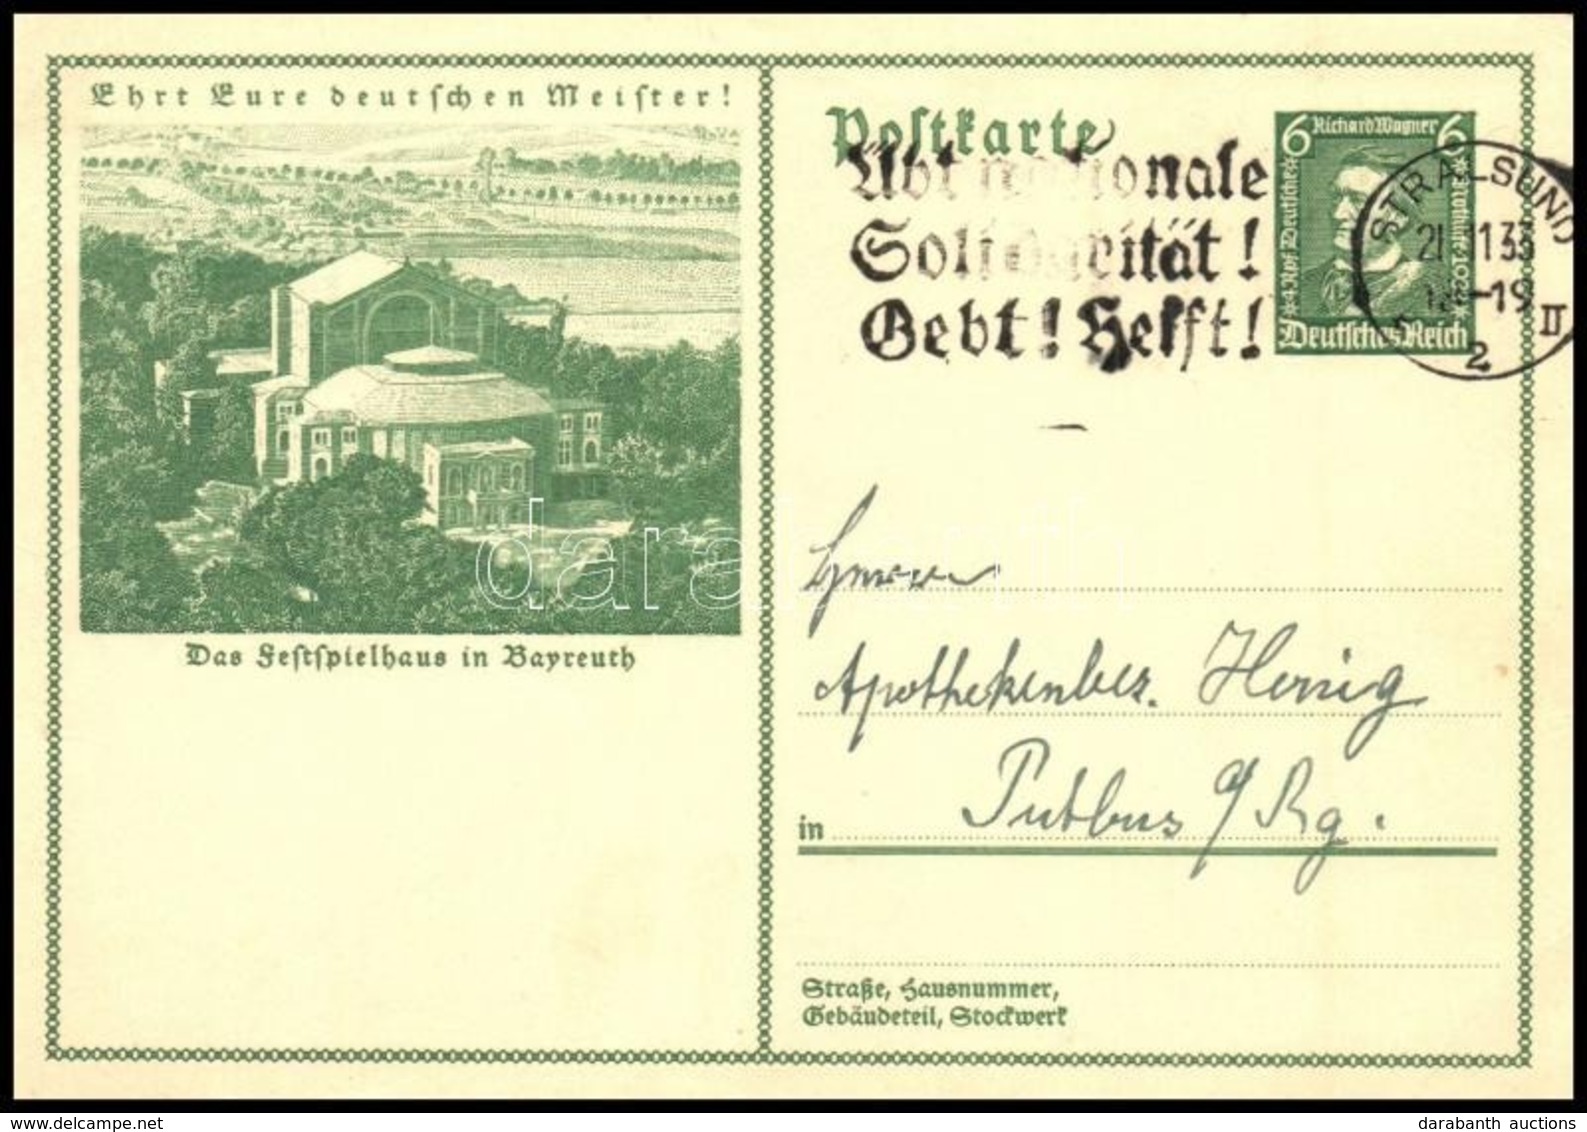 Ehrt Eure deutschen Meister!
Das Festspielhaus in Bayreuth
Postkarte
Übt nationale
Solidarität!
Gebt! Helft!
6 Richard Wagner 6
Deutsches Reich
STRALSUND
-19
2 II
Herrn
Apothekenbes. Honig
in Putbus a/Rg.
Straße, Hausnummer,
Gebäudeteil, Stockwerk
darabanth
www.delcampe.net
darabanth auctions